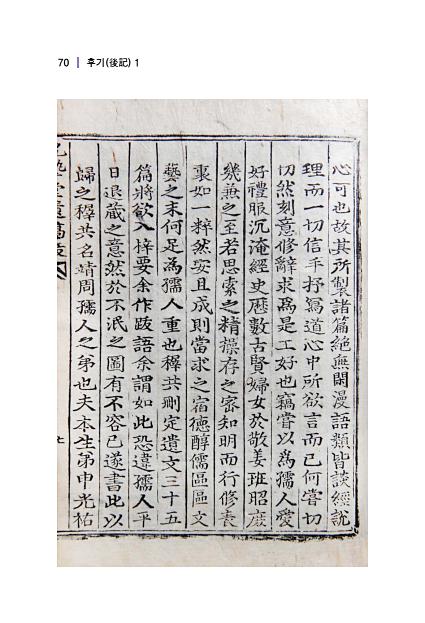 70 | 후기(後記) 1
心可也故其所製諸篇絕無閑漫語類皆談經說
理而一切信手抒寫道心中所欲言而已何嘗切
切然刻意修辭求爲是工好也竊嘗以爲孺人愛
好禮服沉淹經史歷數古賢婦女於敬姜班昭庶
幾兼之至若思索之精操存之密知明而行修表
裏如一粹然安且成則當求之宿德醇儒區區文
藝之末何足爲孺人重也穉共刪定遺文三十五
篇將欲入梓要余作跋語余謂如此恐違孺人平
日退藏之意然於不泯之圖有不容已遂書此以
歸之穉共名靖周孺人之弟也夫本生弟申光祐